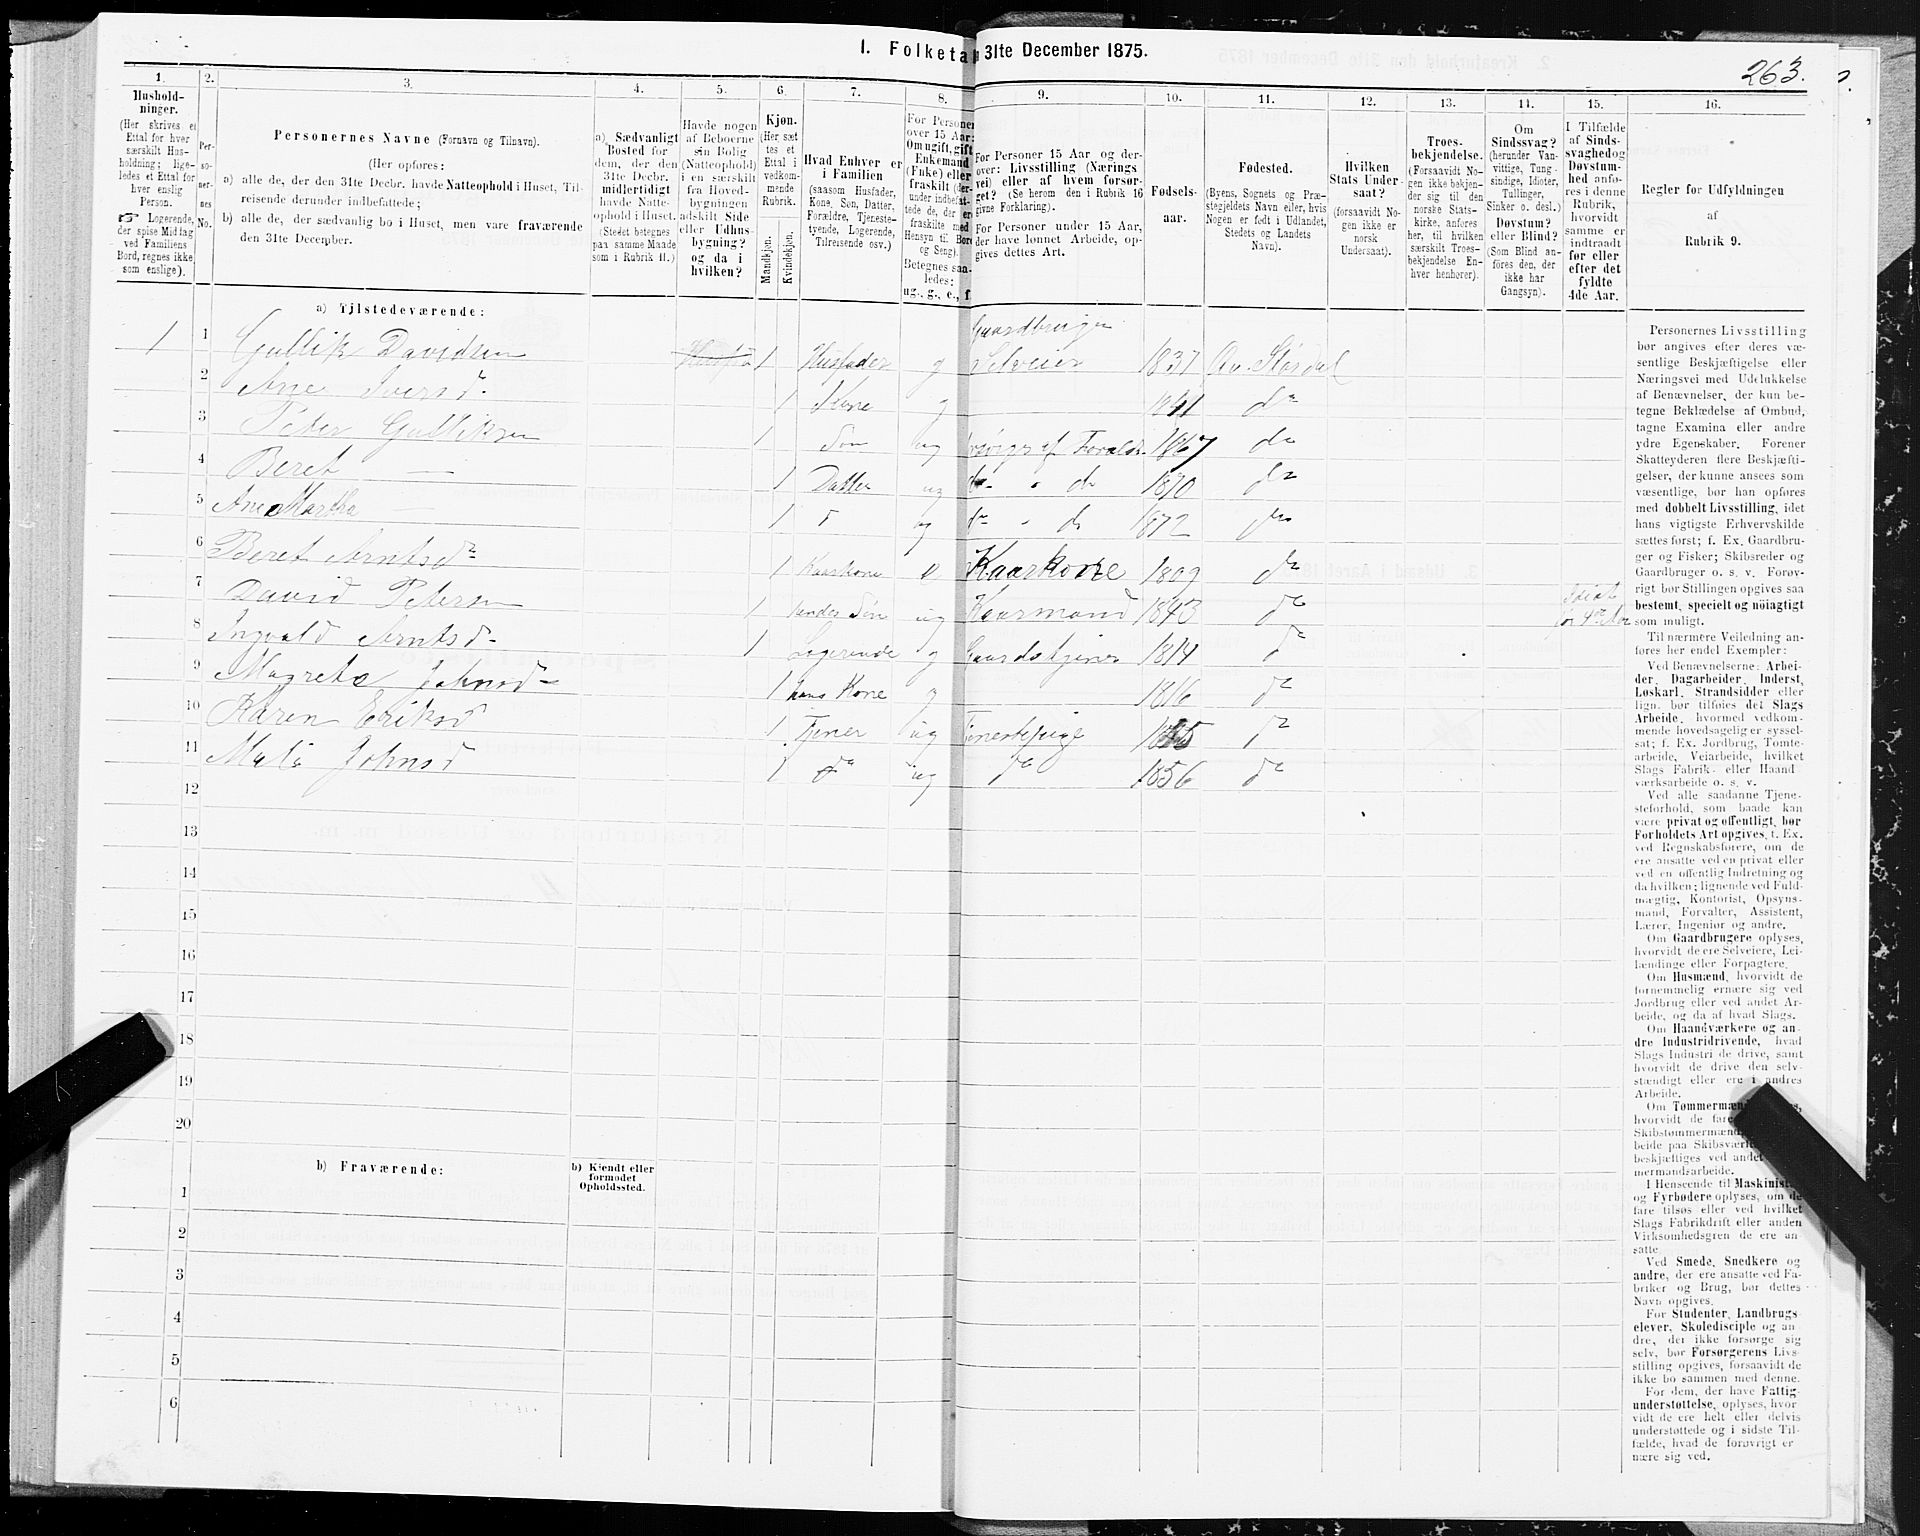 I. Folketa 31te December 1875.
263.
1.
Hushold-
ninger.
(Her skrives et
Ettal for hver
særskilt Hus-
holdning; lige-
ledes et Ettal for
hver enslig
Person.
Logerende,
der spise Middag
ved Familiens
Bord, regnes ikke
som enslige).
2.
Per-
so-
ner-
nes
No.
3.
Personernes Navne (Fornavn og Tilnavn).
(Her opføres:
a) alle de, der den 31te Decbr. havde Natteophold i Huset, Til-
reisende derunder indbefattede;
b) alle de, der sædvanlig bo i Huset, men vare fraværende
den 31te December.
4.
a) Sædvanligt
Bosted for
dem, der den
31te Decbr.
midlertidigt
havde Natte-
ophold i Huset.
(Stedet betegnes
paa samme Maade
som i Rubrik 11.)
5.
Havde nogen
af Beboerne
sin Bolig
(Natteophold)
i en særskilt
fra Hoved-
bygningen
adskilt Side
eller Udhus-
bygning?
og da i
hvilken?
6.
Kjøn.
(Her sæt
tes et
Ettal i
vedkom-
mende
Rubrik.
Mandkjøn.
Kvindekjøn.
7.
Hvad Enhver er
i Familien
(saasom Husfader,
Kone, Søn, Datter,
Forældre, Tjeneste-
tyende, Logerende,
Tilreisende osv.)
8.
For Personer
over 15 Aar:
Om ugift, gift
Enkemand
(Enke) eller
fraskilt (der-
under indbefat-
tede de, der er
fraskilte med
Hensyn til Bord
og Seng).
Betegnes saa-
ledes:
ug., g., e., f.
9.
For Personer 15 Aar og der-
over: Livsstilling (Nærings
vei) eller af hvem forsør-
get? (Se herom den i Rubrik 16
givne Forklaring).
For Personer under 15 Aar,
der have lønnet Arbeide, op-
gives dettes Art.
10.
Fødsels-
aar.
11.
Fødested.
(Byens, Sognets og Præ-
stegjeldets Navn eller, hvis
Nogen er født i Udlandet,
Stedets og Landets
Navn).
12.
Hvilken
Stats Under-
saat?
(forsaavidt No-
gen ikke er
norsk
Undersaat).
13.
Troes-
bekjendelse.
(Forsaavidt No-
gen ikke bekjen-
der sig til den
norske Stats-
kirke, anføres
her, til hvilken
særskilt Troes-
bekjendelse En-
hver henhører).
14.
Om
Sindssvag?
(herunder Van-
vittige, Tung-
sindige, Idioter,
Tullinger,
Sinker o. desl.)
Døvstum?
eller Blind?
(Som Blind an-
føres den, der
ikke har
Gangsyn).
15.
I Tilfælde
af Sinds-
svaghed og
Døvstum-
hed anfø-
res i denne
Rubrik,
hvorvidt
samme er
indtraadt
før eller
efter det
fyldte
4de Aar.
16.
Regler for Udfyldningen
af
Rubrik 9.
a) Tilstedeværende:
1 1 Gullik Davidsen 1 Husfader g Gaardbruger Selveier 1837 Øv. Størdal
2 Ane Iversd 1 Kone g 1841 do
3 Peter Gulliksen 1 Søn ug 1867 do
4 Beret — 1 Datter ug do " do 1870 do
5 Ane Martha — 1 d ug do " do 1872 do
6 Beret Arntsdr 1 Kaarkone e Kaarkone 1809 do
7 David Petersen 1 hendes Søn ug Kaarmand 1843 do Idiot
8 Ingvald Arntsd 1 Logerende g Gaardstjener 1814 do
9 Magrete Johnsd 1 hans Kone g 1816 do
10 Karen Eriksd 1 Tjener ug Tjenestepige do
11 Johnsd 1 do ug do 1856 do
12
13
14
15
16
17
18
19
20
b) Fraværende:
b) Kjendt eller
formodet
Opholdssted.
1
2
3
4
5
6
Personernes Livsstilling
bør angives efter deres væ-
sentlige Beskjæftigelse eller
Næringsvei med Udelukkelse
af Benævnelser, der kun be-
tegne Beklædelse af Ombud,
tagne Examina eller andre
ydre Egenskaber. Forener
Skatteyderen flere Beskjæfti-
gelser, der kunne ansees som
væsentlige, bør han opføres
med dobbelt Livsstilling, idet
hans vigtigste Erhvervskilde
sættes først; f. Ex. Gaardbru-
ger og Fisker; Skibsreder og
Gaardbruger o. s. v. Forøv-
rigt bør Stillingen opgives saa
bestemt, specielt og nøiagtigt
som muligt.
Til nærmere Veiledning an-
føres her endel Exempler:
Ved Benævnelserne: Arbei-
der, Dagarbeider, Inderst,
Løskarl, Strandsidder eller
lign. bør tilføies det Slags
Arbeide, hvormed vedkom-
mende hovedsagelig er syssel-
sat; f. Ex. Jordbrug, Tomte-
arbeide, Veiarbeide, hvilket
Slags Fabrik- eller Haand
værksarbeide o. s. v.
Ved alle saadanne Tjene-
steforhold, som baade kan
være privat og offentligt, bør
Forholdets Art opgives, t. Ex.
ved Regnskabsførere, om de
ere ansatte ved en privat eller
ved en offentlig Indretning og
da hvilken; lignende ved Fuld-
mægtig, Kontorist, Opsyns-
mand, Forvalter, Assistent,
Lærer, Ingeniør og andre.
Om Gaardbrugere oplyses,
hvorvidt de ere Selveiere, Lei-
lændinge eller Forpagtere.
Om Husmænd, hvorvidt de
fornemmelig ernære sig ved
Jordbrug eller ved andet Ar-
beide, og da af hvad Slags.
Om Haandværkere og an-
dre Industridrivende, hvad
Slags Industri de drive, samt
hvorvidt de drive den selv-
stændigt eller ere i andres
Arbeide.
Om Tømmermænd
hvorvidt de fare
Skibstømmermænd
beide paa Skibsværk
beskjæftiges ved andet
mermandsarbeide.
I Henseende til Maskinist
og Fyrbødere oplyses, om de
fare tilsøs eller ved hvilket
Slags Fabrikdrift eller anden
Virksomhedsgren de ere an-
satte.
Ved Smede, Snedkere og
andre, der ere ansatte ved Fa-
briker og Brug, bør dettes
Navn opgives.
For Studenter, Landbrugs-
elever, Skoledisciple og an-
dre, der ikke forsørge sig
selv, bør Forsørgerens Livs-
stilling opgives, forsaavidt de
ikke bo sammen med denne.
For dem, der have Fattig-
understøttelse, oplyses, hvor
vidt de ere helt eller delvis
understøttede og i sidste Til-
fælde, hvad de forøvrigt er
nære sig ved.